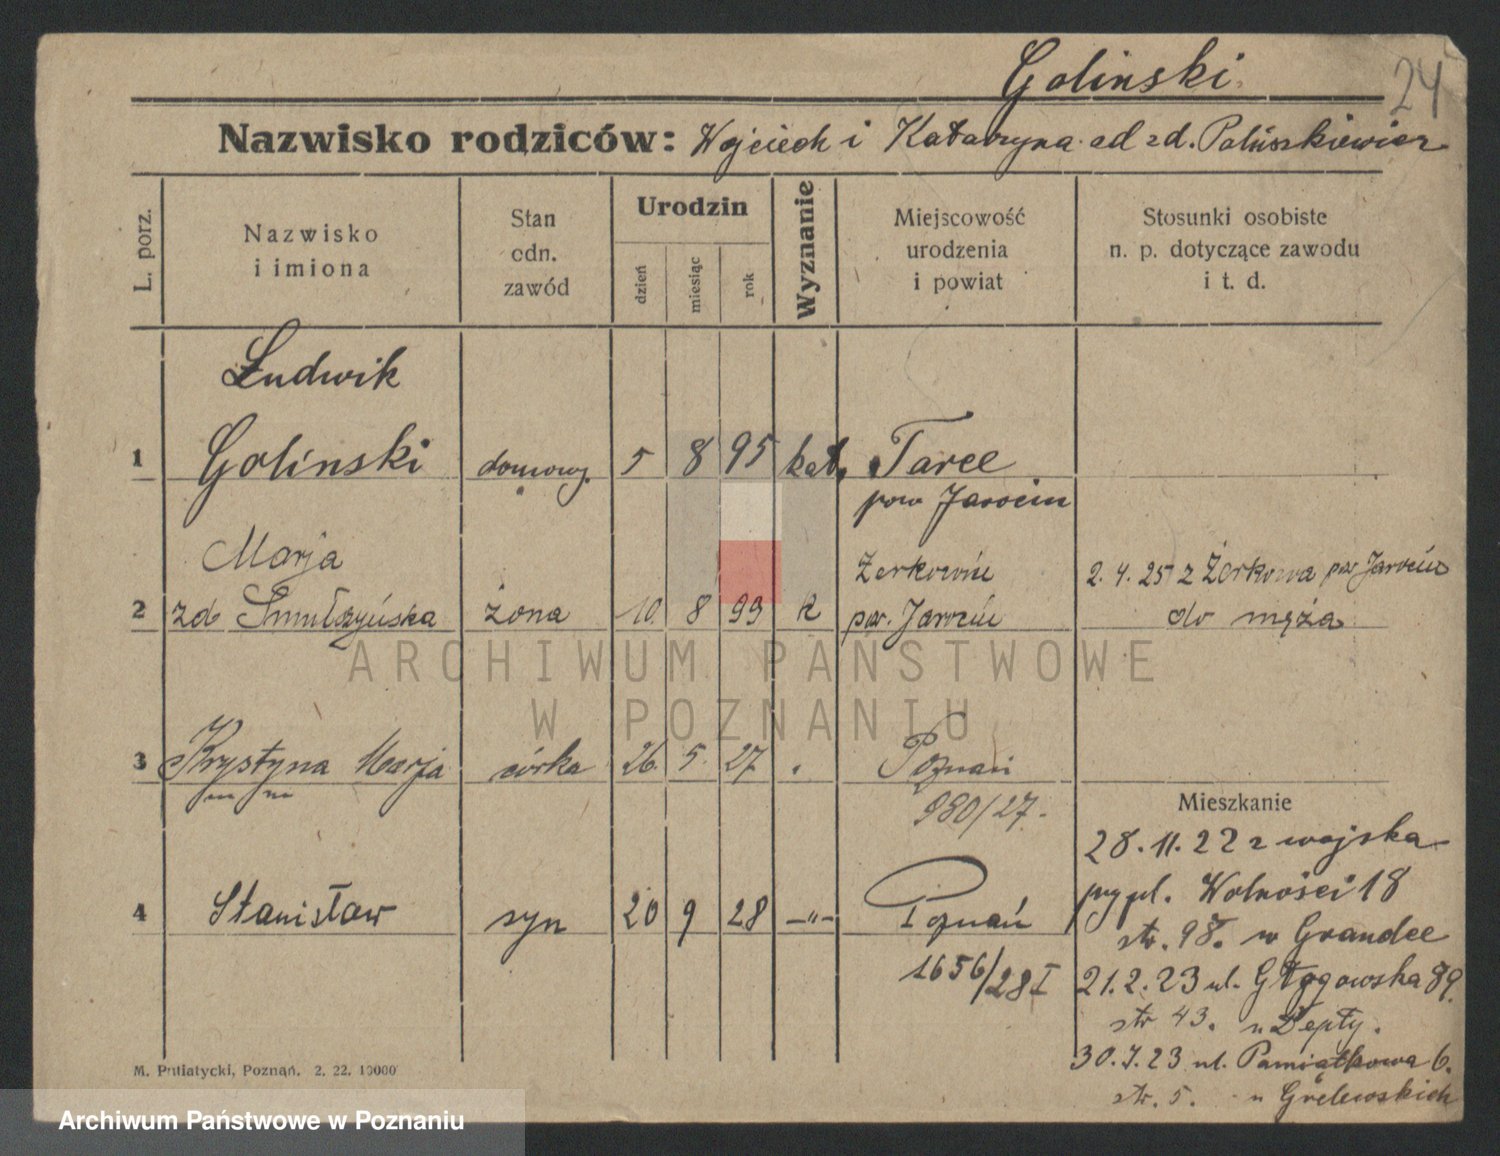 Goliński
24
Nazwisko rodziców: Wojciech i Katarzyna
L. porz.
Nazwisko i imiona
Stan odn. zawód
Urodzin
dzień
miesiąc
rok
Wyznanie
Miejscowość urodzenia i powiat
Stosunki osobiste n. p. dotyczące zawodu i t. d.
Ludwik
1 Goliński domowy. 5 8 95 kat. Tarce
pow Jarocin
Marja Żerkowie 2. 4. 25 z Żerkowa pow Jarocin
2 zd Smułczyńska żona 10. 8 99 k pow. Jarocin do męża
3 Krystyna Marja córka 26. 5. 27 Poznań
Mieszkanie
980/27.
28. 11. 22 z wojska
przy pl. Wolności 18
4 Stanisław syn 20 9 28 —"— Poznań
str. 98. w Grandce
1656/28 I
21. 2. 23 ul. Głogowska 89.
str 43. u Depty.
30. 7. 23 ul. Pamiątkowa 6.
str. 5. u Grelewskich
M. Putiatycki, Poznań. 2. 22. 10000
ARCHIWUM PAŃSTWOWE
W POZNANIU
Archiwum Państwowe w Poznaniu